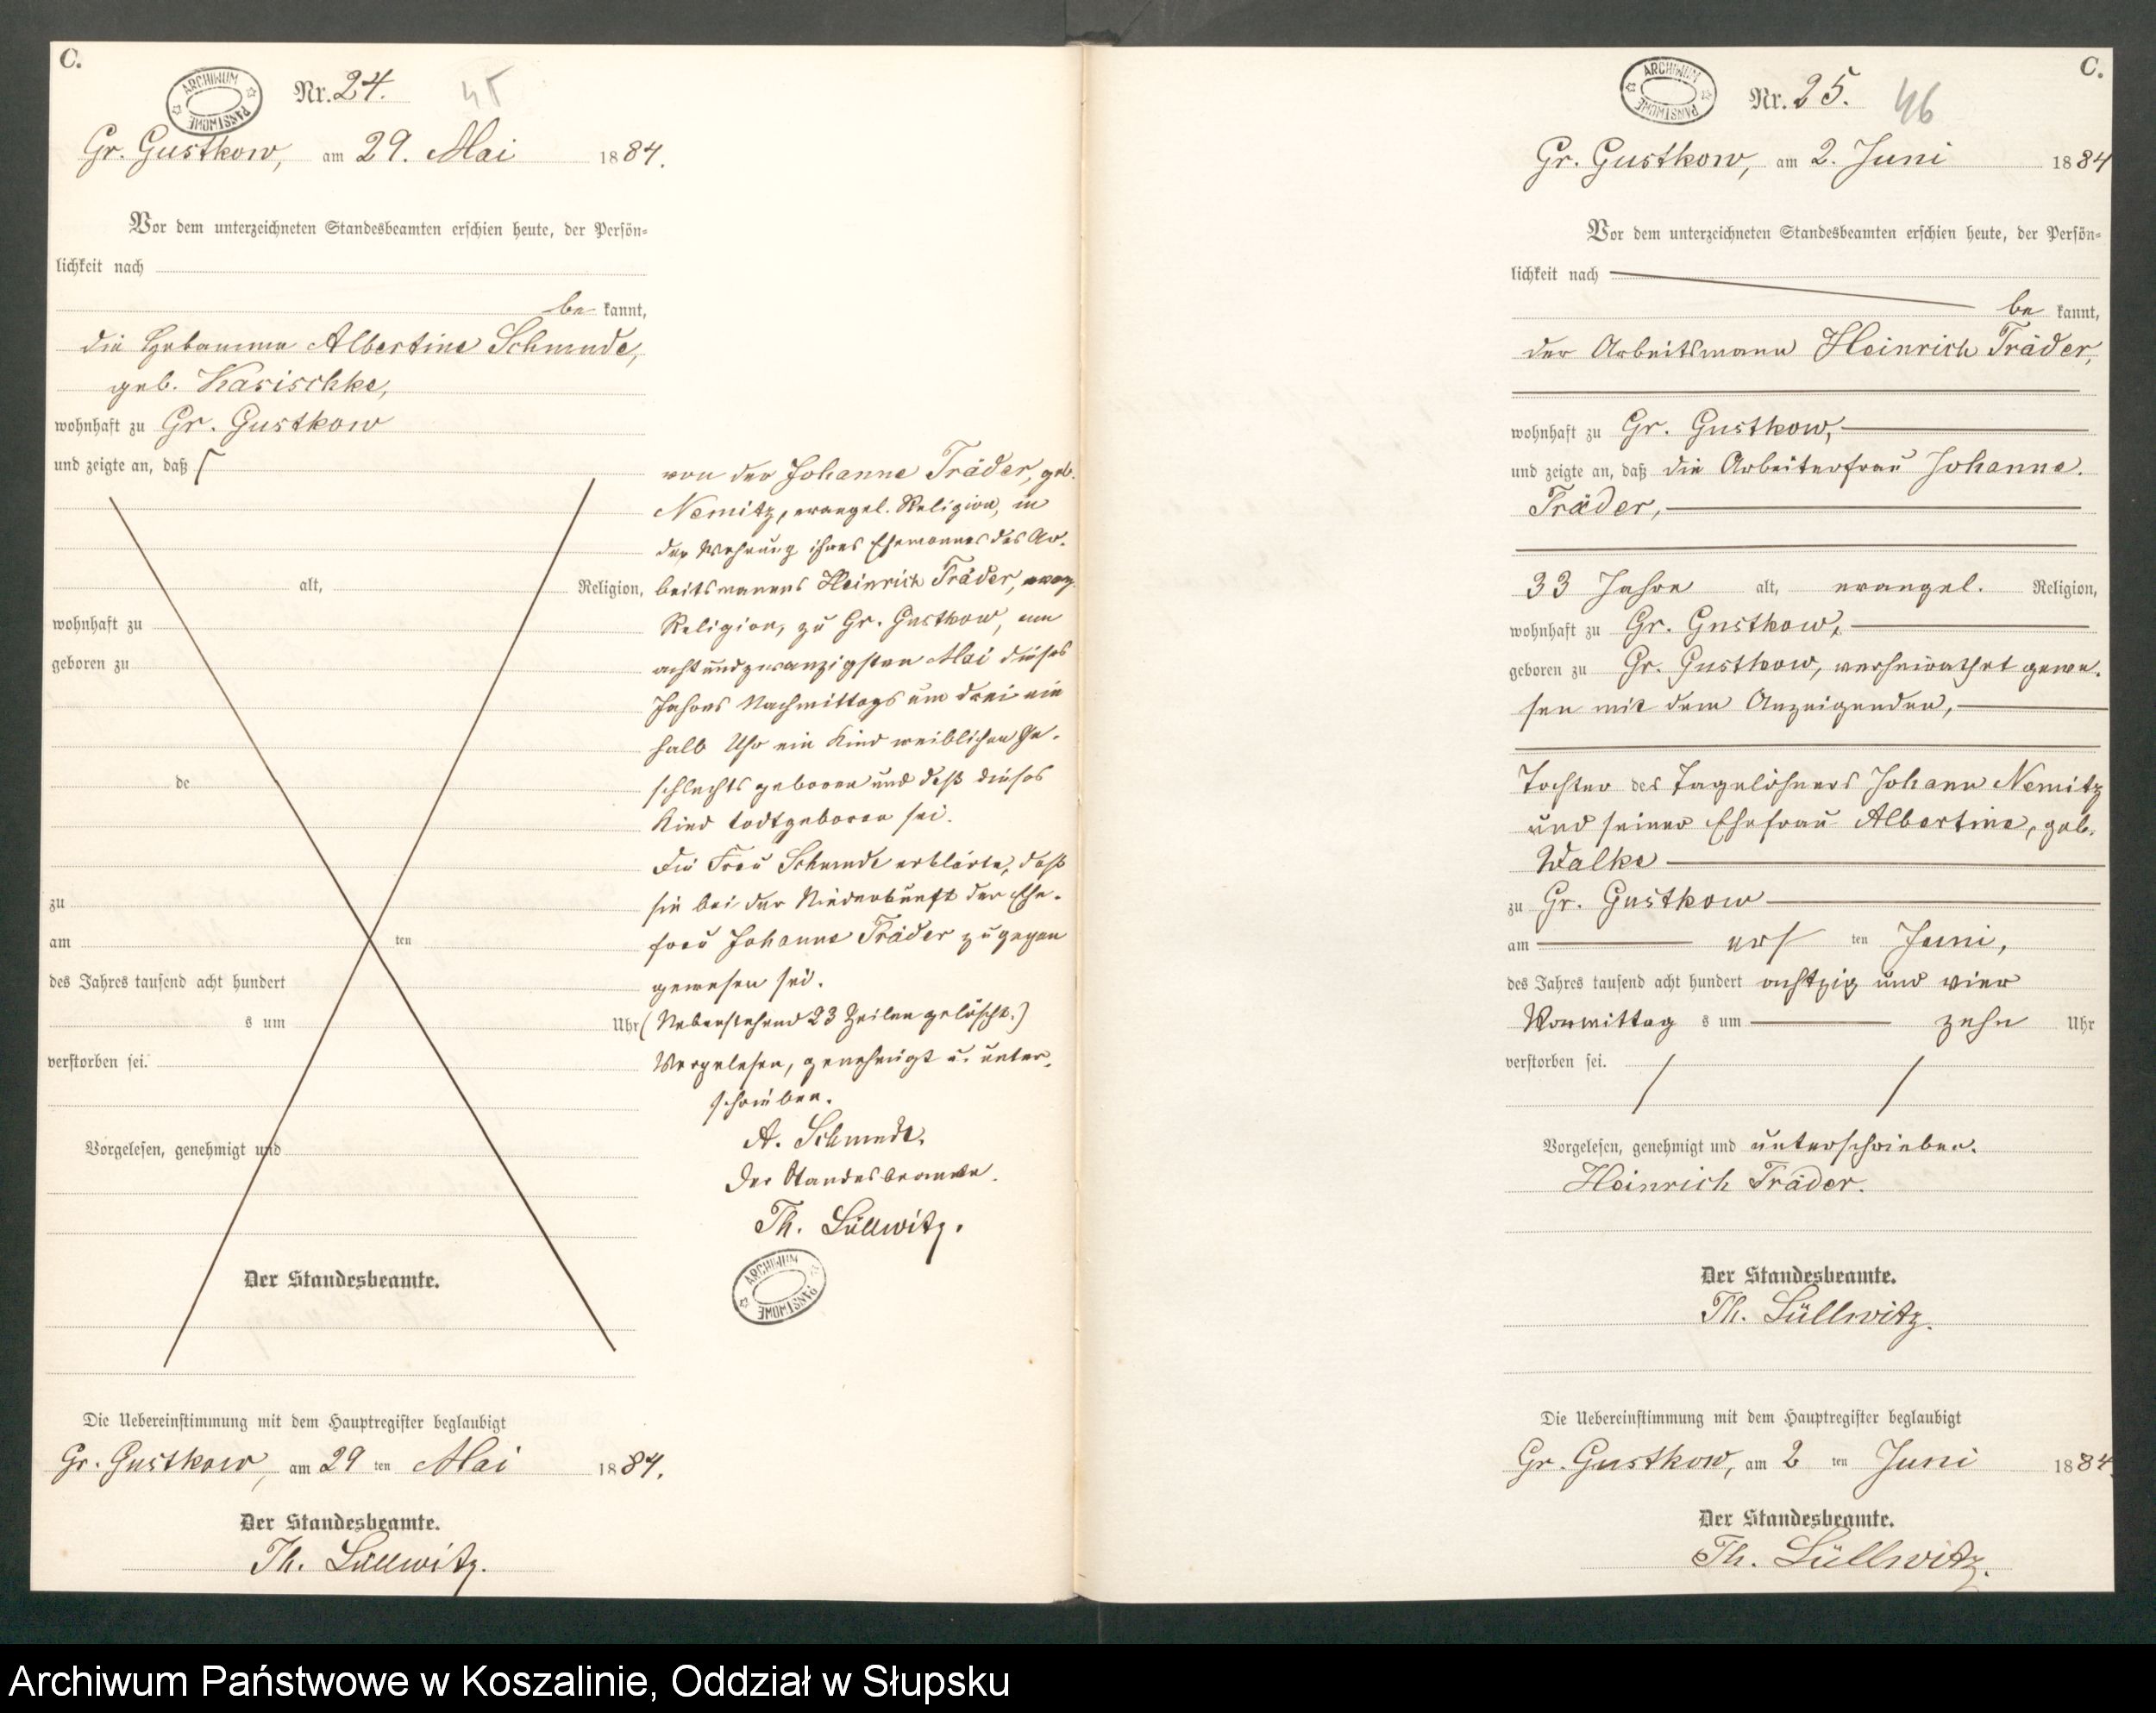 C.
ARCHIWUM PAŃSTWOWE
Nr. 24.
45
Gr. Gustkow, am 29. Mai 1884.
Vor dem unterzeichneten Standesbeamten erschien heute, der Persön=
lichkeit nach
be kannt,
die Hebamme Albertine Schmude,
geb. Kasischke,
wohnhaft zu Gr. Gustkow
und zeigte an, daß
alt, Religion,
wohnhaft zu
geboren zu
de
zu
am ten
des Jahres tausend acht hundert
s um Uhr
verstorben sei.
Vorgelesen, genehmigt und
Der Standesbeamte.
von der Johanne Träder, geb.
Nemitz, evangel. Religion, in
der Wohnung ihres Ehemannes des Ar-
beitsmannes Heinrich Träder, evang.
Religion, zu Gr. Gustkow, am
acht und zwanzigsten Mai dieses
Jahres Nachmittags um drei ein
halb Uhr ein Kind weiblichen Ge-
schlechts geboren und daß dieses
Kind todtgeboren sei.
Die Frau Schmude erklärte, daß
sie bei der Niederkunft der Ehe-
frau Johanne Träder zugegen
gewesen sei.
(Nebenstehend 23 Zeilen gelöscht.)
Vorgelesen, genehmigt u. unter-
schrieben.
A. Schmude.
Der Standesbeamte.
Th. Lüllwitz.
ARCHIWUM PAŃSTWOWE
Die Uebereinstimmung mit dem Hauptregister beglaubigt
Gr. Gustkow, am 29 ten Mai 1884.
Der Standesbeamte.
Th. Lüllwitz.
C.
ARCHIWUM PAŃSTWOWE
Nr. 25.
46
Gr. Gustkow, am 2. Juni 1884
Vor dem unterzeichneten Standesbeamten erschien heute, der Persön=
lichkeit nach
be kannt,
der Arbeitsmann Heinrich Träder,
wohnhaft zu Gr. Gustkow,
und zeigte an, daß die Arbeiterfrau Johanne
Träder,
33 Jahre alt, evangel. Religion,
wohnhaft zu Gr. Gustkow,
geboren zu Gr. Gustkow, verheirathet gewe-
sen mit dem Anzeigenden,
Tochter des Tagelöhners Johann Nemitz
und seiner Ehefrau Albertine, geb.
Walke
zu Gr. Gustkow
am ers ten Juni,
des Jahres tausend acht hundert achtzig und vier
Vormittag s um zehn Uhr
verstorben sei.
Vorgelesen, genehmigt und unterschrieben.
Heinrich Träder.
Der Standesbeamte.
Th. Lüllwitz.
Die Uebereinstimmung mit dem Hauptregister beglaubigt
Gr. Gustkow, am 2 ten Juni 1884.
Der Standesbeamte.
Th. Lüllwitz.
Archiwum Państwowe w Koszalinie, Oddział w Słupsku